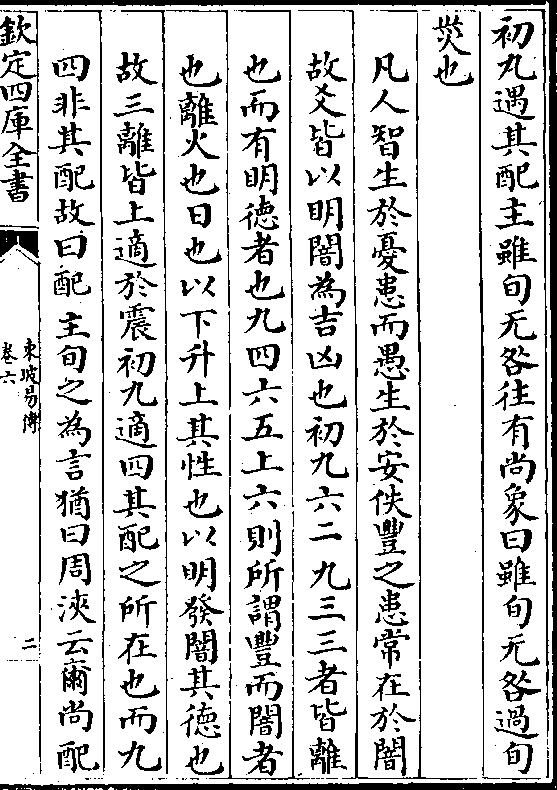 初九遇其配主雖旬无咎往有尚象曰雖旬无咎過旬
災也
凡人智生於憂患而愚生於安佚豐之患常在於闇
故爻皆以明闇為吉凶也初九六二九三三者皆離
也而有明徳者也九四六五上六則所謂豐而闇者
也離火也日也以下升上其性也以明發闇其徳也
故三離皆上適於震初九適四其配之所在也而九
四非其配故曰配主旬之為言猶曰周浹云爾尚配
欽定四庫全書
東坡易傳
卷六
二